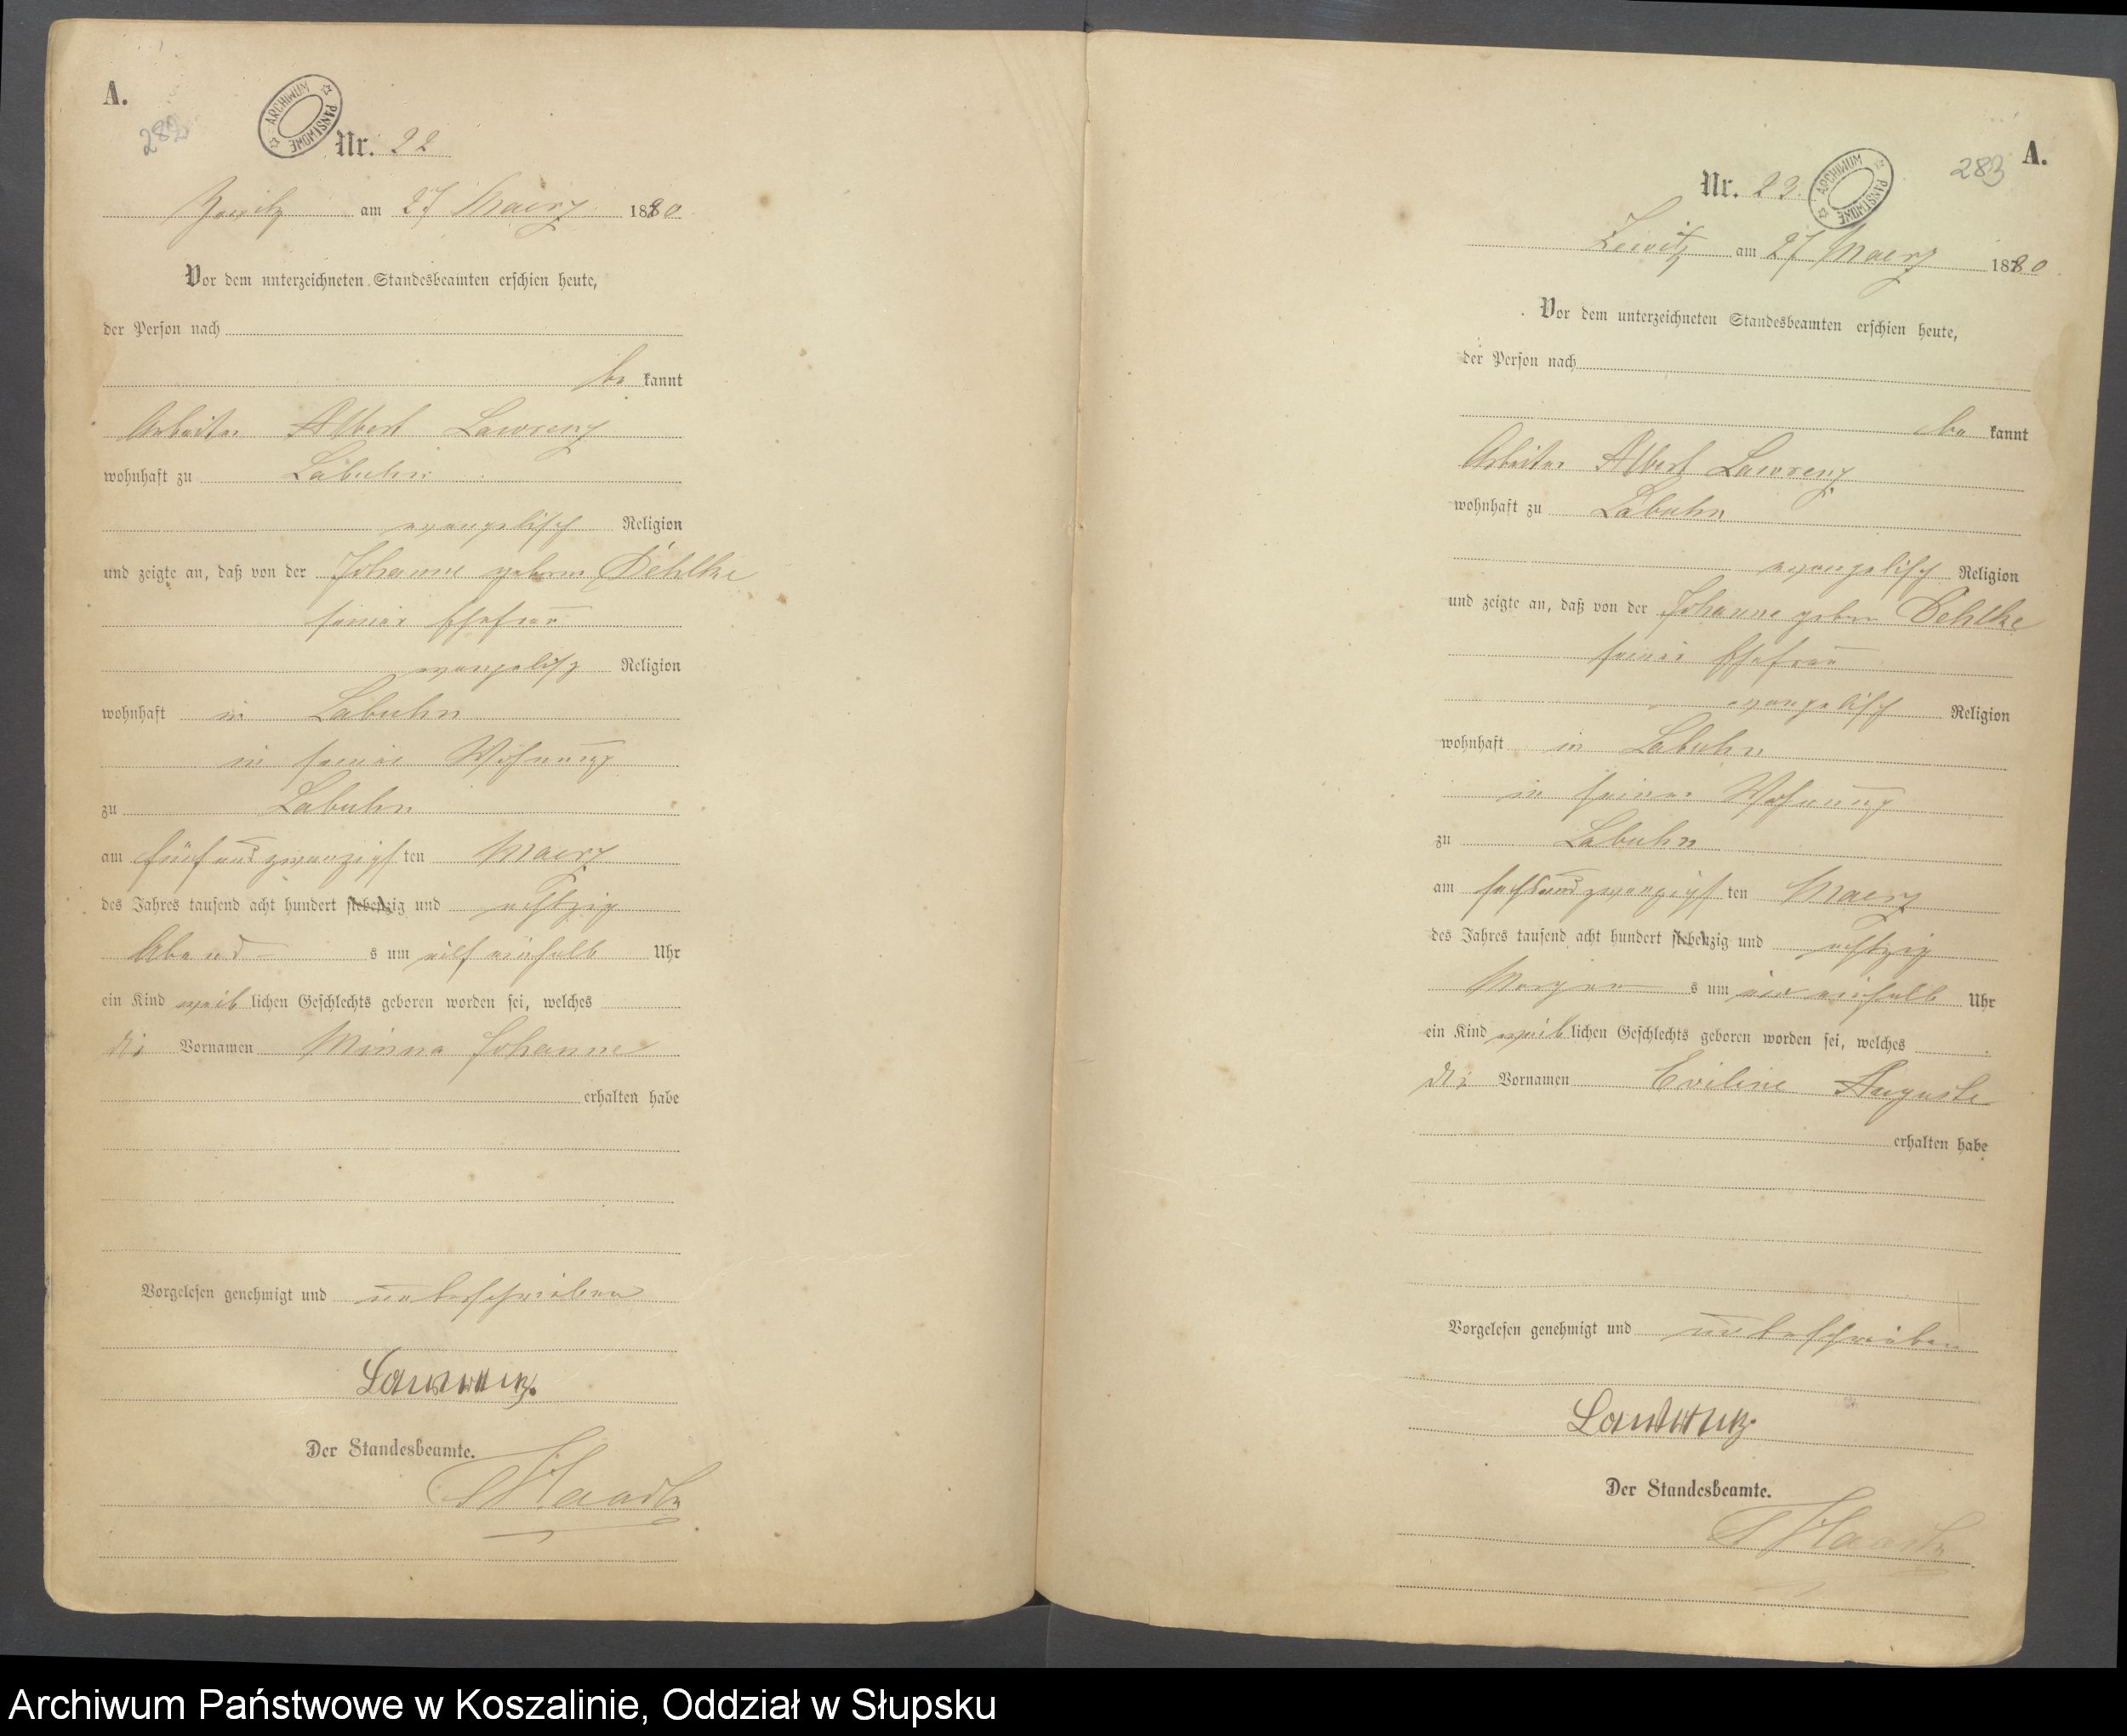 A.
282
ARCHIWUM PAŃSTWOWE
Nr. 22
Zewitz am 27 Maerz 1880
Vor dem unterzeichneten Standesbeamten erschien heute,
der Person nach
be kannt
Arbeiter Albert Lawrenz
wohnhaft zu Labuhn
evangelisch Religion
und zeigte an, daß von der Johanne geborne
seiner Ehefrau
evangelisch Religion
wohnhaft in Labuhn
in seiner Wohnung
zu Labuhn
am fünf und zwanzigsten Maerz
des Jahres tausend acht hundert siebenzig und achtzig
Abend s um elf einhalb Uhr
ein Kind weiblichen Geschlechts geboren worden sei, welches
die Vornamen Minna Johanne
erhalten habe
Vorgelesen genehmigt und unterschrieben
Lawrenz.
Der Standesbeamte.
A.
283
ARCHIWUM PAŃSTWOWE
Nr. 23.
Zewitz am 27 Maerz 1880.
Vor dem unterzeichneten Standesbeamten erschien heute,
der Person nach
be kannt
Arbeiter Albert Lawrenz
wohnhaft zu Labuhn
evangelisch Religion
und zeigte an, daß von der Johanne geborn
seiner Ehefrau
evangelisch Religion
wohnhaft in Labuhn
in seiner Wohnung
zu Labuhn
am sechsundzwanzigsten Maerz
des Jahres tausend acht hundert siebenzig und achtzig
Morgen s um ein einhalb Uhr
ein Kind weiblichen Geschlechts geboren worden sei, welches
die Vornamen Eviline Auguste
erhalten habe
Vorgelesen genehmigt und unterschrieben
Lawrenz.
Der Standesbeamte.
Archiwum Państwowe w Koszalinie, Oddział w Słupsku